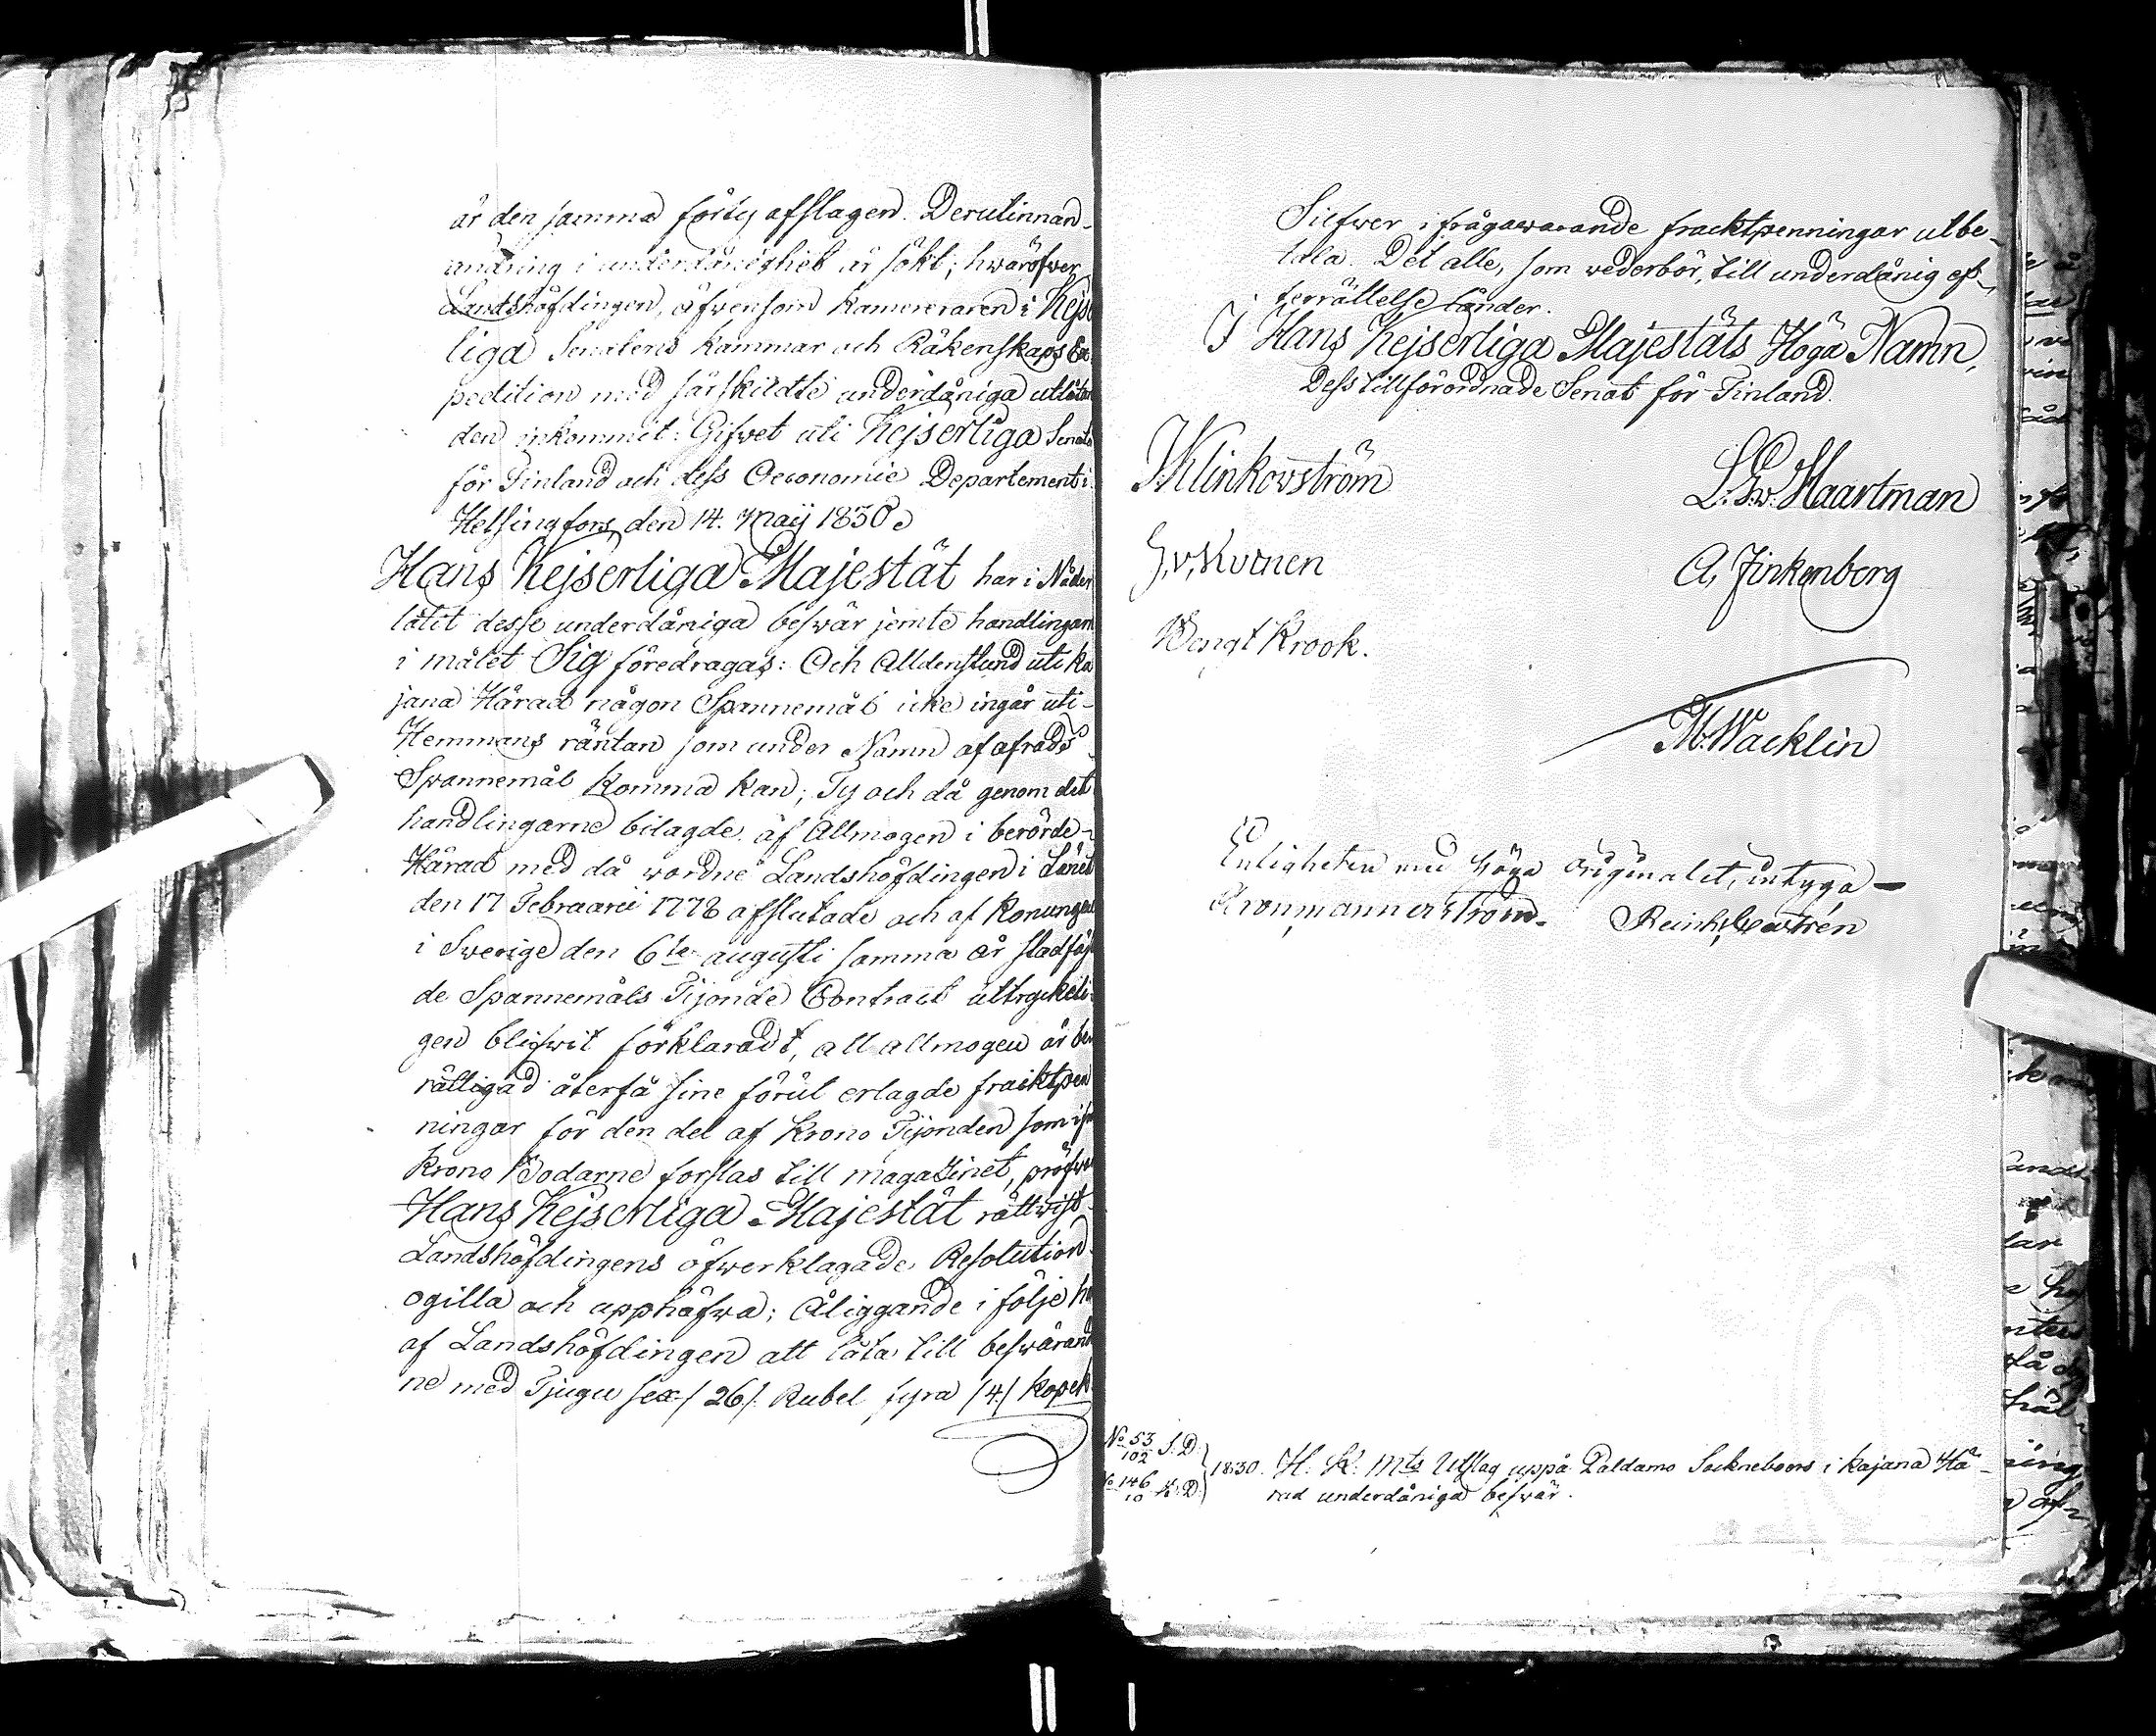 är den samma förty afslagen. Derutinnan
ändring i underdånighet är sökt; hwaröfwer
Landshöfdingen, äfwensom Kamereraren i Kejs
liga Senatens Kammar och Räkenskaps Ex
pedition med särskildte underdåniga utlåtan
den inkommit: Gifwet uti Kejserliga Senate
för Finland och dess Oeconomie Departement i
Helsingfors, den 14. Maij 1830.
Hans Kejserliga Majestät har i Nåder
låtit desse underdåniga beswär jemte handlingarn
i målet Sig föredragas: Och Alldenstund uti Ka
jana Härad någon Spannemål icke ingår uti
Hemmans räntan som under Namn af afrads
Spannemål komma kan; Ty och då genom det
handlingarne bilagde af Allmogen i berörde
Härad med då wordne Landshöfdingen i Länet
den 17 Februarii 1778 afslutade och af Konungen
i Swerige den 6te augusti samma år stadfäs
de Spannemåls Tijonde Contract uttryckeli
gen blifwit förklaradt, att allmogen är be
rättigad återfå sine förut erlagde fracktpen
ningar för den del af Krono Tijonden som ifr
Krono Bodarne forslas till magazinet, pröfwar
Hans Kejserliga Majestät rättwist
Landshöfdingens öfwerklagade Resolution
ogilla och upphäfwa; Åliggande i följe h
af Landshöfdingen att låta till beswärand
ne med Tjugu sex /26/ Rubel fyra /4/ Kopek
Silfwer ifrågawarande fracktpenningar utbe-
tala. Det alle, som wederbör, till underdånig ef-
terrättelse länder.
I Hans Kejserliga Majestäts Höga Namn,
Dess tillförordnade Senat för Finland.
J. Klinkovström
L. G. v. Haartman
G. v. Kutnen
A. Finkenberg
Bengt Krook.
M. Wacklin
Enligheten med höga originalet, intyga
Cronmannerström. Reinh. Castrén
No 53/102 S.D.
No 146/10 K.D.
1830. H. K. Mts Utslag uppå Paldamo Socknebors i Kajana Hä-
rad underdåniga beswär.